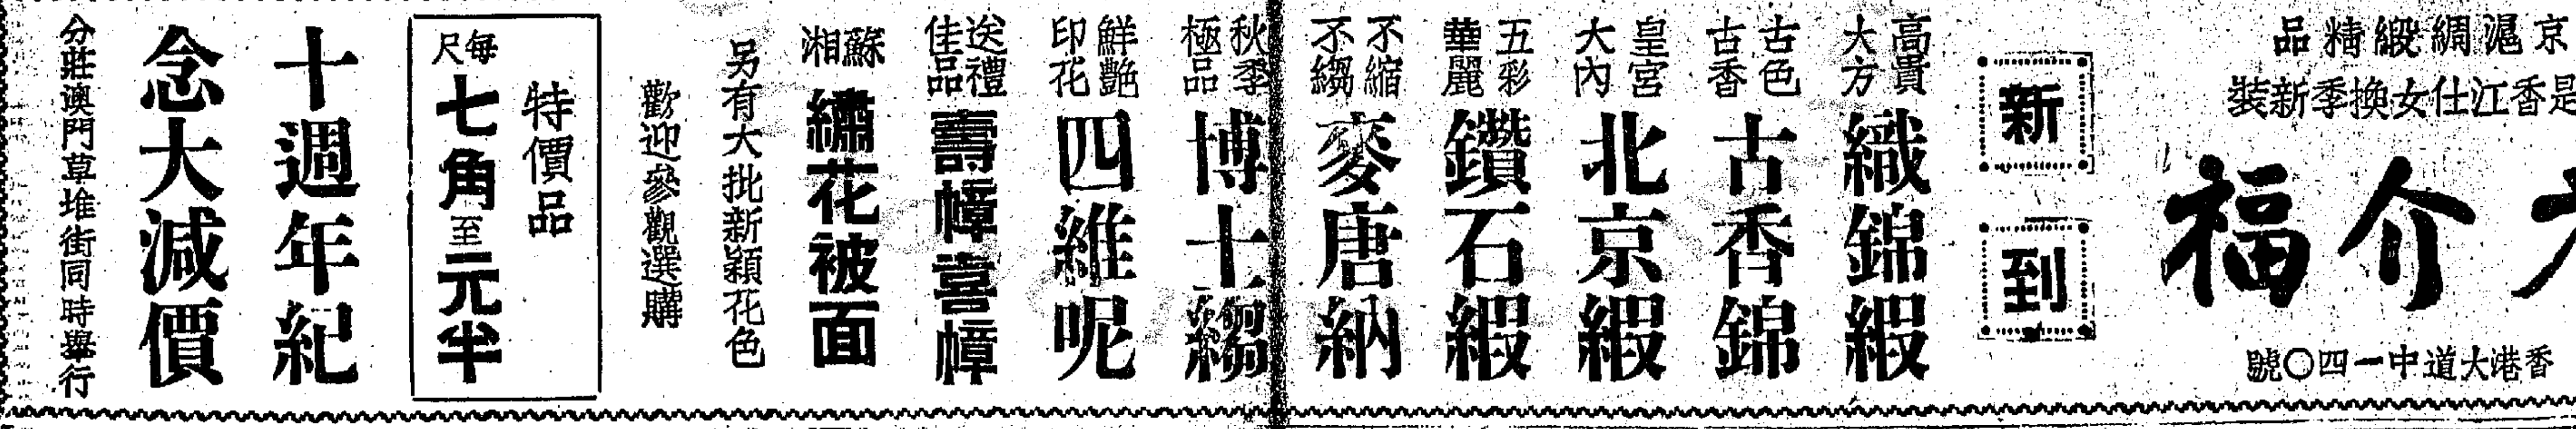 京滬綢緞精品
是香江仕女換季新裝
大介福
香港大道中一四〇號
新到
高貴大方 織錦緞
古色古香 古香錦
皇宮大內 北京緞
五彩華麗 鑽石緞
不縮不縐 麥唐納
秋季極品 博士縐
鮮艷印花 四維呢
送禮佳品 壽幛喜幛
蘇湘 繡花被面
另有大批新穎花色
歡迎參觀選購
特價品
每尺七角至元半
十週年紀
念大減價
分莊澳門草堆街同時舉行